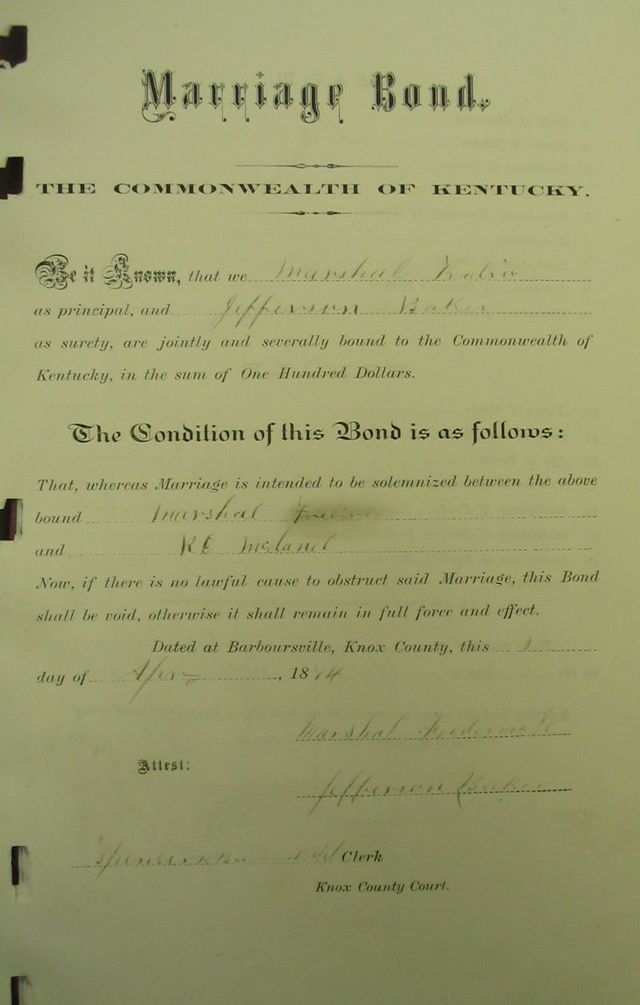 Marriage Bond.
THE COMMONWEALTH OF KENTUCKY.
Be it Known, that we Marshal
as principal, and Jefferson Baker
as surety, are jointly and severally bound to the Commonwealth of
Kentucky, in the sum of One Hundred Dollars.
The Condition of this Bond is as follows:
That, whereas Marriage is intended to be solemnized between the above
bound Marshal
and
Now, if there is no lawful cause to obstruct said Marriage, this Bond
shall be void, otherwise it shall remain in full force and effect.
Dated at Barboursville, Knox County, this
day of , 18
Marshal
Attest:
Jefferson Baker
Clerk
Knox County Court.